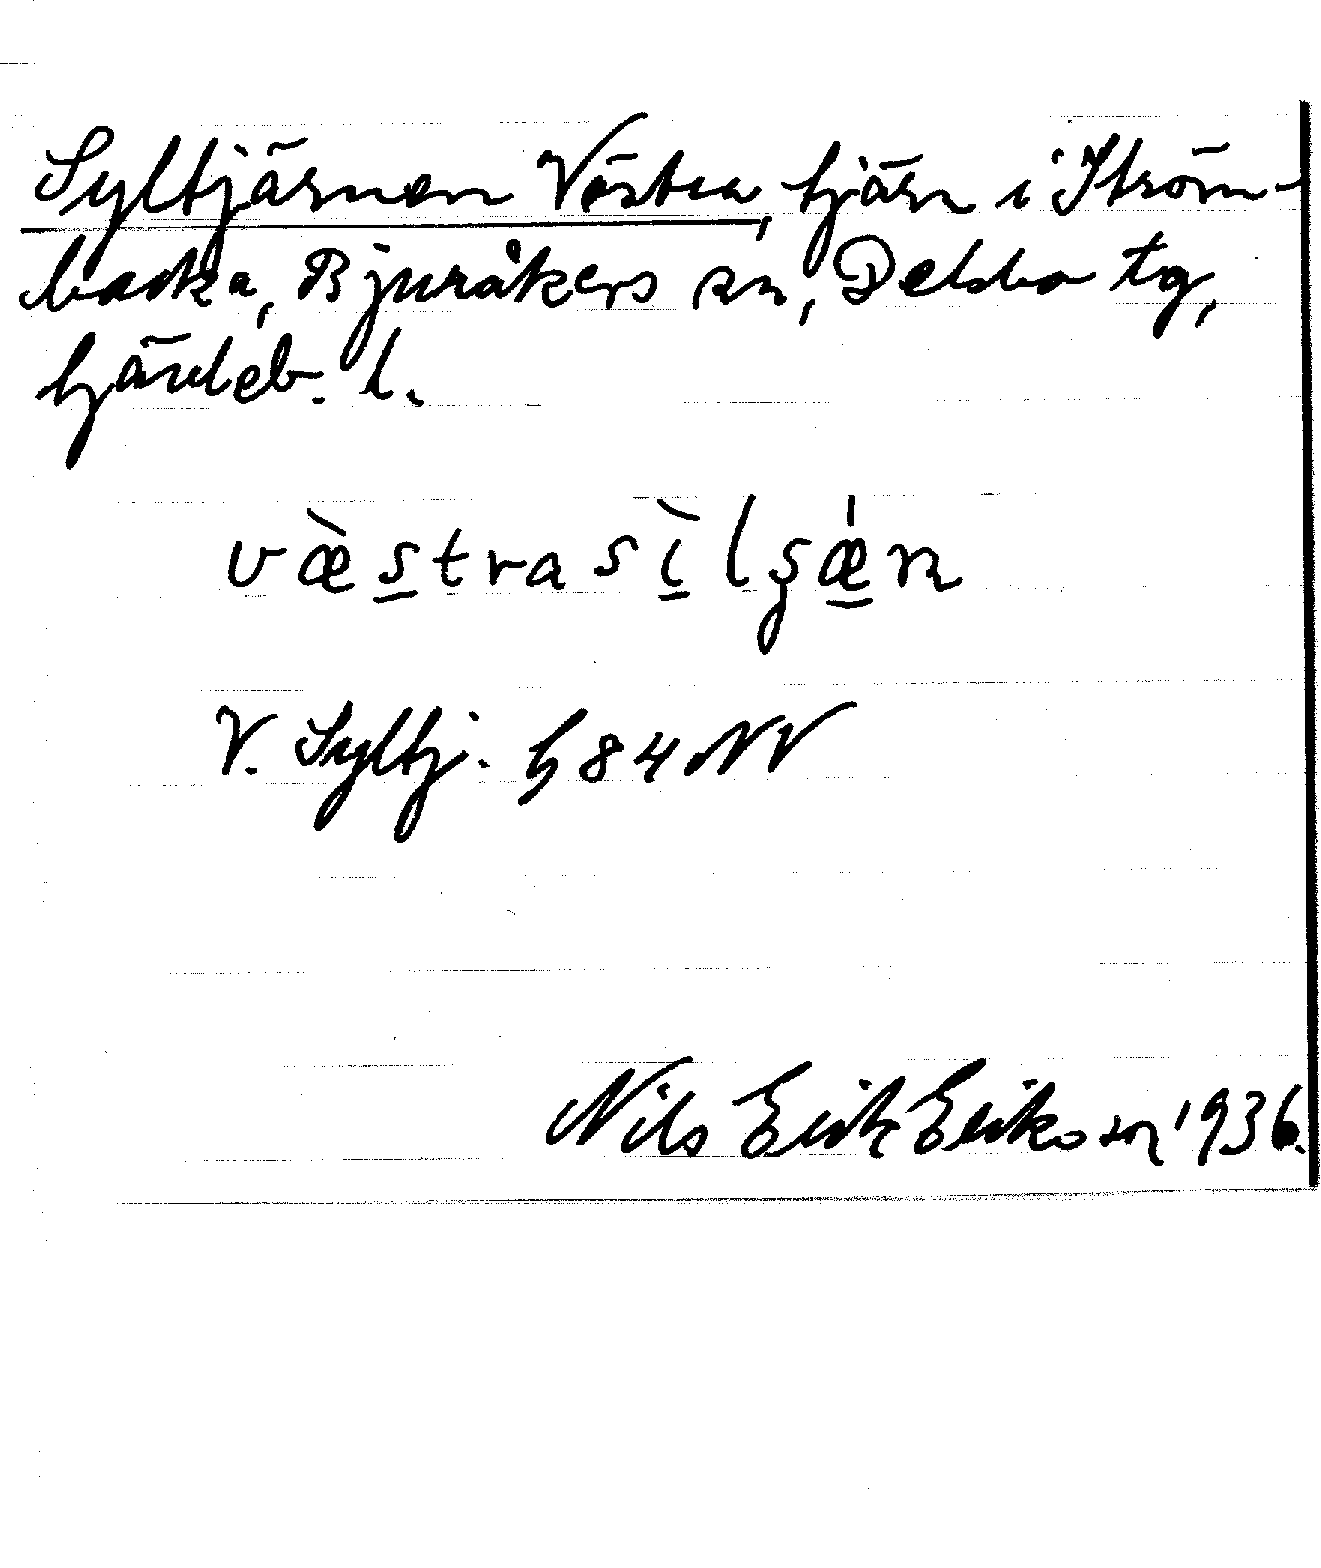 Syltjärnen Västra, tjärn i Ström-
backa, Bjuråkers sn, Delsbo tg,
Gävleb. l.
væ̀s̲trasì̲lʂǽ̲n
V. Syltj. h 84 NV
Nils Erik Eriksson 1936.